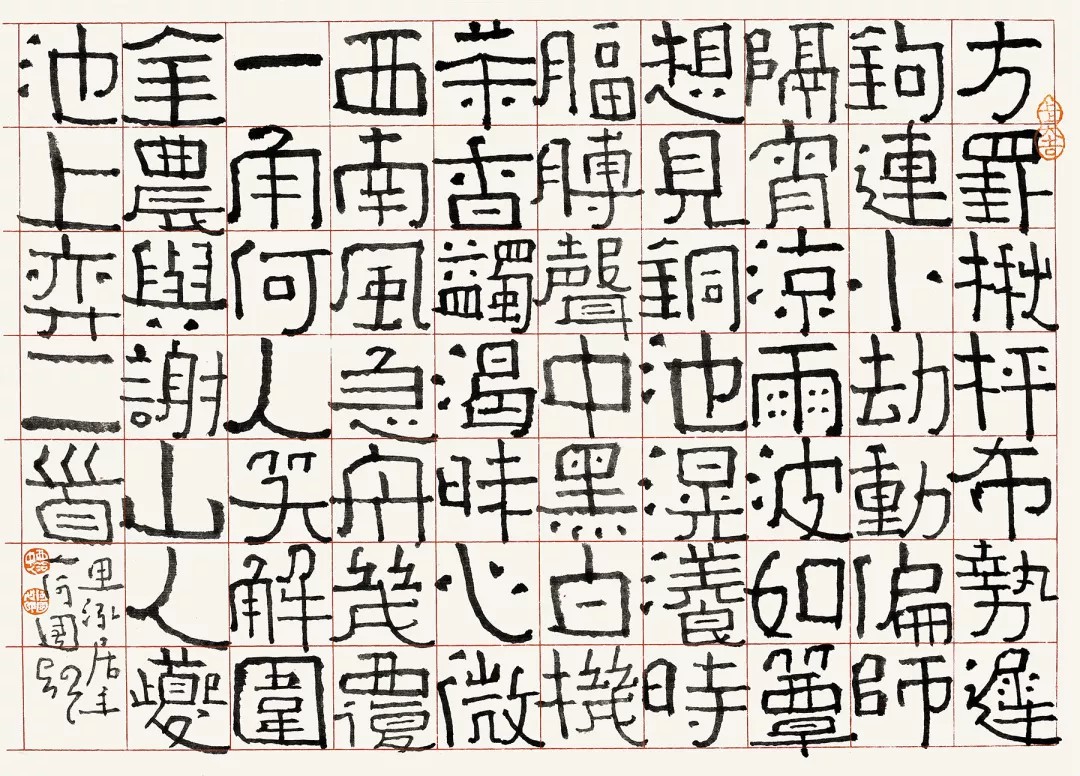 方罫楸枰布勢遲
鉤連小劫動偏師
隔宵涼雨波如簟
想見銅池滉瀁時
腷膊聲中黑白機
茶香蠲渴心微
西南風急舟幾覆
一角何人笑解圍
金農與謝山人夔
池上弈二首
居主